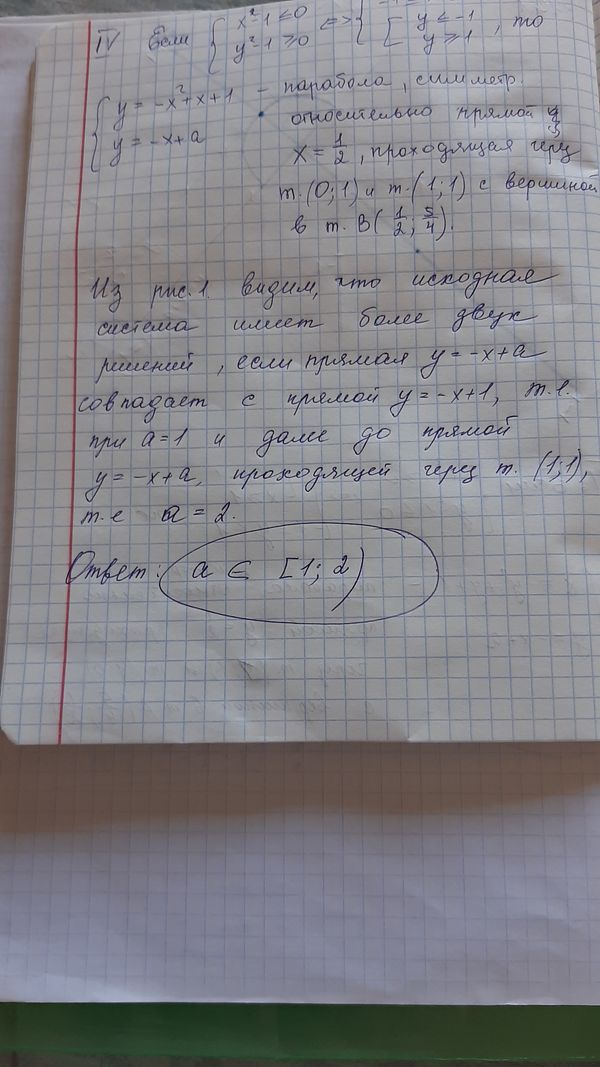 IV Если { x²-1 ≤ 0 <=> {
y²-1 ≥ 0 [ y ≤ -1
y ≥ 1 , то
{ y = -x²+x+1 - парабола, симметр.
y = -x+a относительно прямой
x = 1/2, проходящая через
т.(0;1) и т.(1;1) с вершиной
в т. B(1/2; 5/4).
Из рис.1. видим, что исходная
система имеет более двух
решений, если прямая y = -x+a
совпадает с прямой y = -x+1, т.е.
при a=1 и далее до прямой
y = -x+a, проходящей через т. (1;1),
т.е a = 2.
Ответ: a ∈ [1; 2)